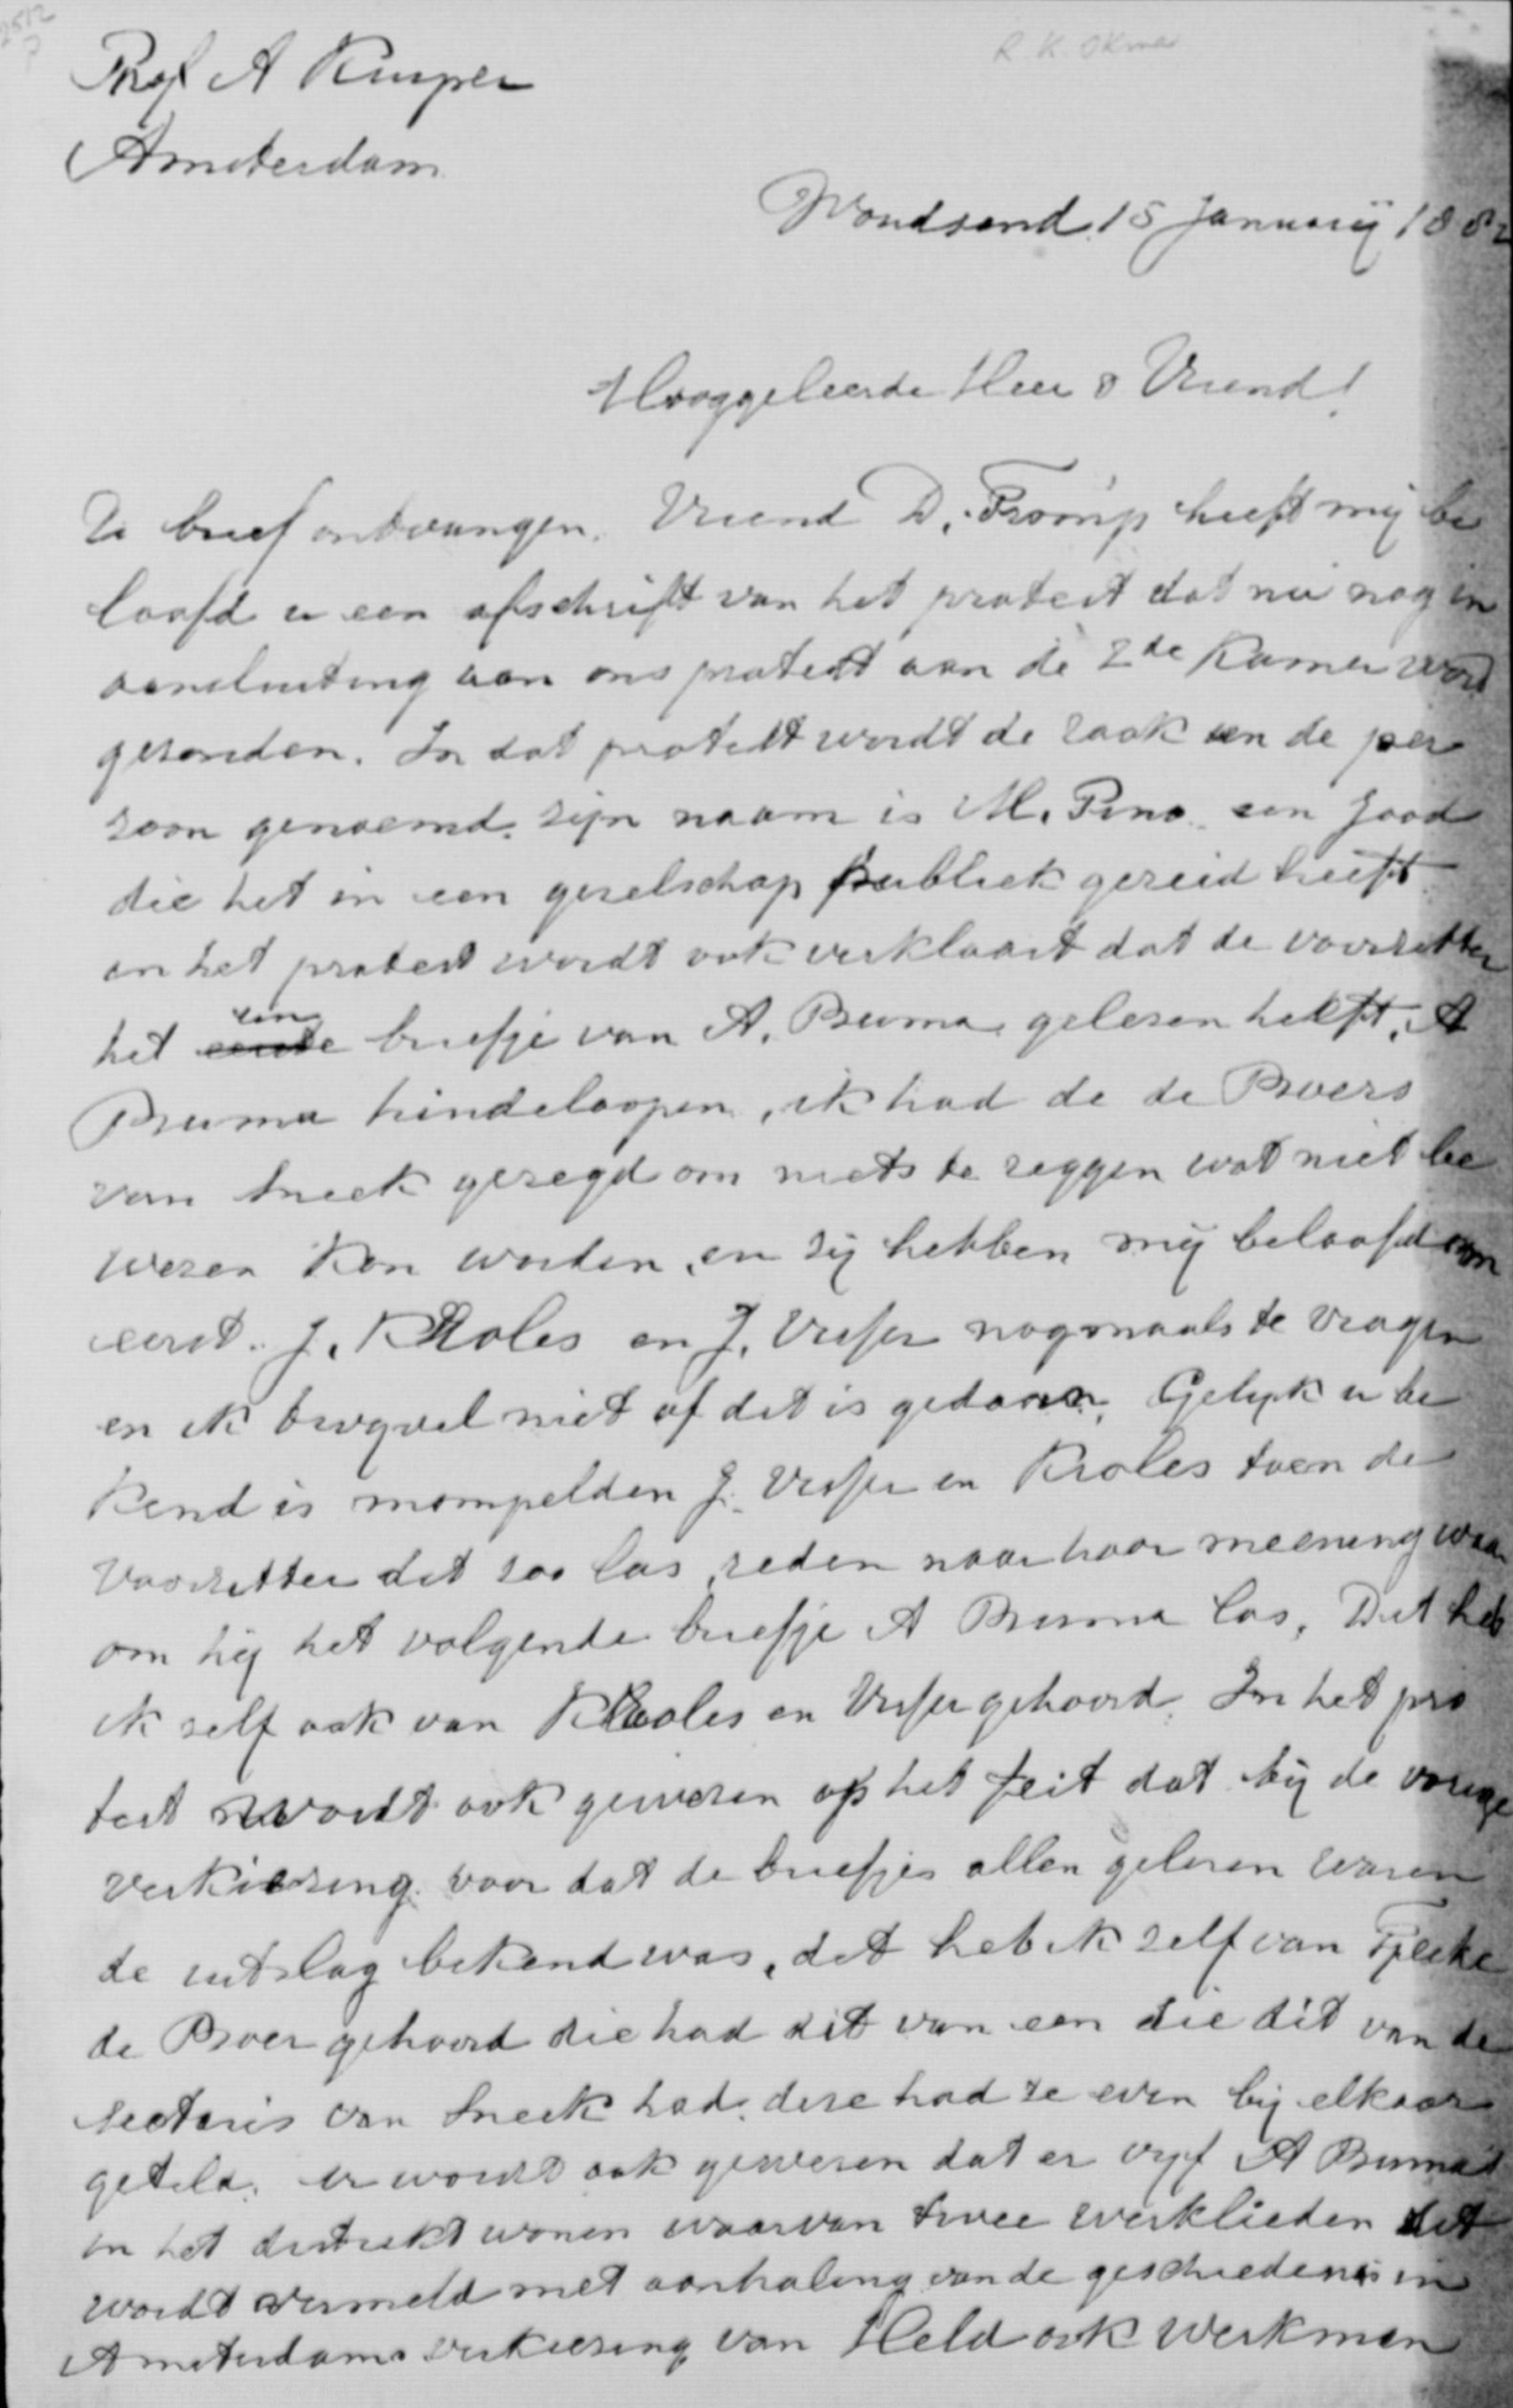 2512
R. K. Okma
Prof A Kuyper
Amsterdam
Woudsend 15 Januarij 1882
Hooggeleerde Heer & Vriend!
U brief ontvangen. Vriend D. Tromp heeft mij be
loofd u een afschrift van het protest dat nu nog in
aansluiting aan ons protest aan de 2de Kamer word
gesonden. In dat protest wordt de zaak en de per
zoon genoemd. zijn naam is M. Pino een Jood
die het in een geselschap publiek gezeid heeft
in het protest wordt ook verklaart dat de voorsitter
het een briefje van A. Buma gelesen heeft. A
Buma hindeloopen, ik had de de Boers
van Sneek gezegd om niets te zeggen wat niet be
wezen kon worden, en zij hebben mij beloofd om
eerst J. Kroles en J. Visser nogmaals te vragen
en ik twyvel niet of dit is gedaan. Gelyk u be
kend is mompelden J. Visser en Kroles toen de
Voorsitter dit zoo las, reden naar haar meening waar
om hij het volgende briefje A Buma las. Dit heb
ik self ook van Kroles en Visser gehoord. In het pro
test wordt ook gewesen op het feit dat bij de vorige
verkiezing voor dat de briefjes allen gelesen waren
de uitslag bekend was, dit heb ik self van Tjeerke
de Boer gehoord die had dit van een die dit van de
sectaris van Sneek had. dese had ze even bij elkaar
geteld. er wordt ook gewesen dat er vyf A Buma's
in het distrikt wonen waarvan twee werklieden dit
wordt vermeld met aanhaling van de geschiedenis in
Amsterdams verkiesing van Held ook werkman